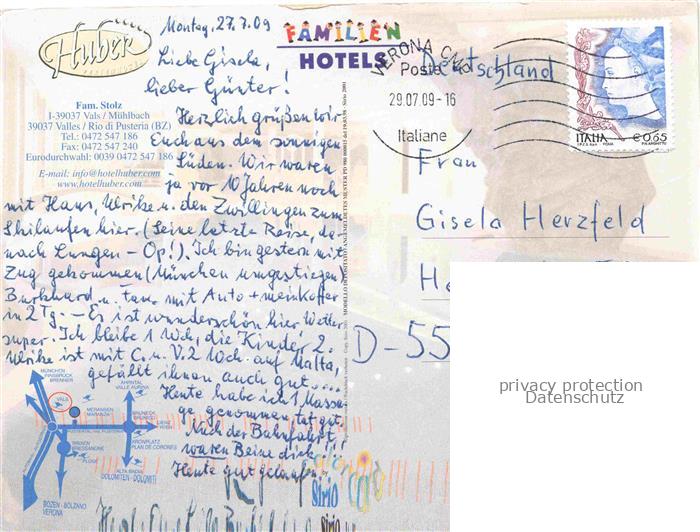 Montag, 27.7.09
Huber
Liebe Gisela,
lieber Günter!
FAMILIEN
HOTELS
Fam. Stolz
I-39037 Vals / Mühlbach
39037 Valles / Rio di Pusteria (BZ)
Tel.: 0472 547 186
Fax: 0472 547 240
Eurodurchwahl: 0039 0472 547 186
E-mail: info@hotelhuber.com
www.hotelhuber.com
Herzlich grüßen wir
Euch aus dem sonnigen
Süden. Wir waren
ja vor 10 Jahren noch
mit Hans, Ulrike u. den Zwillingen zum
Skilaufen hier. (Seine letzte Reise, da-
nach Lungen-Op!). Ich bin gestern mit
Zug gekommen (München umgestiegen)
Burkhard u. Fam. mit Auto + mein Koffer
in 2 Tg. – Es ist wunderschön hier Wetter
super. Ich bleibe 1 Wch, die Kinder 2.
Ulrike ist mit C. u. V. 2 Wch. auf Malta,
gefällt ihnen auch gut....
Heute habe ich 1 Massa-
ge genommen, tat gut.
Nach der Bahnfahrt
waren Beine dick!!!
Heute gut gelaufen
MÜNCHEN
INNSBRUCK
BRENNER
VALS
MERANSEN
MARANZA
AHRNTAL
VALLE AURINA
BRUNECK
BRUNICO
LIENZ
WIEN
KRONPLATZ
PLAN DE CORONES
BRIXEN
BRESSANONE
PLOSE
ALTA BADIA
DOLOMITEN - DOLOMITI
BOZEN - BOLZANO
VERONA
Sirio
VERONA
Poste
29.07.09 - 16
Italiane
ITALIA
€ 0,65
Deutschland
Frau
Gisela Herzfeld
He
D-55
privacy protection
Datenschutz